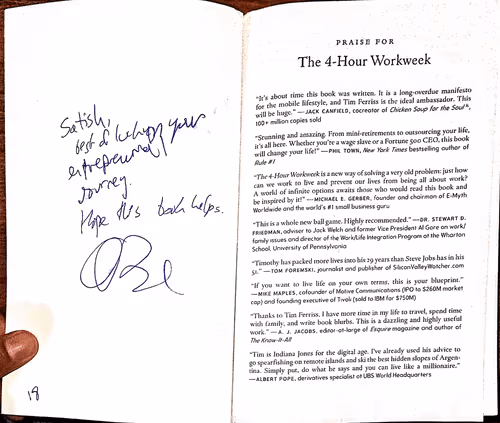 Satish,
best of luck on your
entrepreneurial
journey.
Hope this book helps.
18
PRAISE FOR
The 4-Hour Workweek
"It's about time this book was written. It is a long-overdue manifesto
for the mobile lifestyle, and Tim Ferriss is the ideal ambassador. This
will be huge." —JACK CANFIELD, cocreator of Chicken Soup for the Soul®,
100+ million copies sold
"Stunning and amazing. From mini-retirements to outsourcing your life,
it's all here. Whether you're a wage slave or a Fortune 500 CEO, this book
will change your life!" —PHIL TOWN, New York Times bestselling author of
Rule #1
"The 4-Hour Workweek is a new way of solving a very old problem: just how
can we work to live and prevent our lives from being all about work?
A world of infinite options awaits those who would read this book and
be inspired by it!" —MICHAEL E. GERBER, founder and chairman of E-Myth
Worldwide and the world's #1 small business guru
"This is a whole new ball game. Highly recommended." —DR. STEWART D.
FRIEDMAN, adviser to Jack Welch and former Vice President Al Gore on work/
family issues and director of the Work/Life Integration Program at the Wharton
School, University of Pennsylvania
"Timothy has packed more lives into his 29 years than Steve Jobs has in his
51." —TOM FOREMSKI, journalist and publisher of SiliconValleyWatcher.com
"If you want to live life on your own terms, this is your blueprint."
—MIKE MAPLES, cofounder of Motive Communications (IPO to $260M market
cap) and founding executive of Tivoli (sold to IBM for $750M)
"Thanks to Tim Ferriss, I have more time in my life to travel, spend time
with family, and write book blurbs. This is a dazzling and highly useful
work." —A. J. JACOBS, editor-at-large of Esquire magazine and author of
The Know-It-All
"Tim is Indiana Jones for the digital age. I've already used his advice to
go spearfishing on remote islands and ski the best hidden slopes of Argen-
tina. Simply put, do what he says and you can live like a millionaire."
—ALBERT POPE, derivatives specialist at UBS World Headquarters